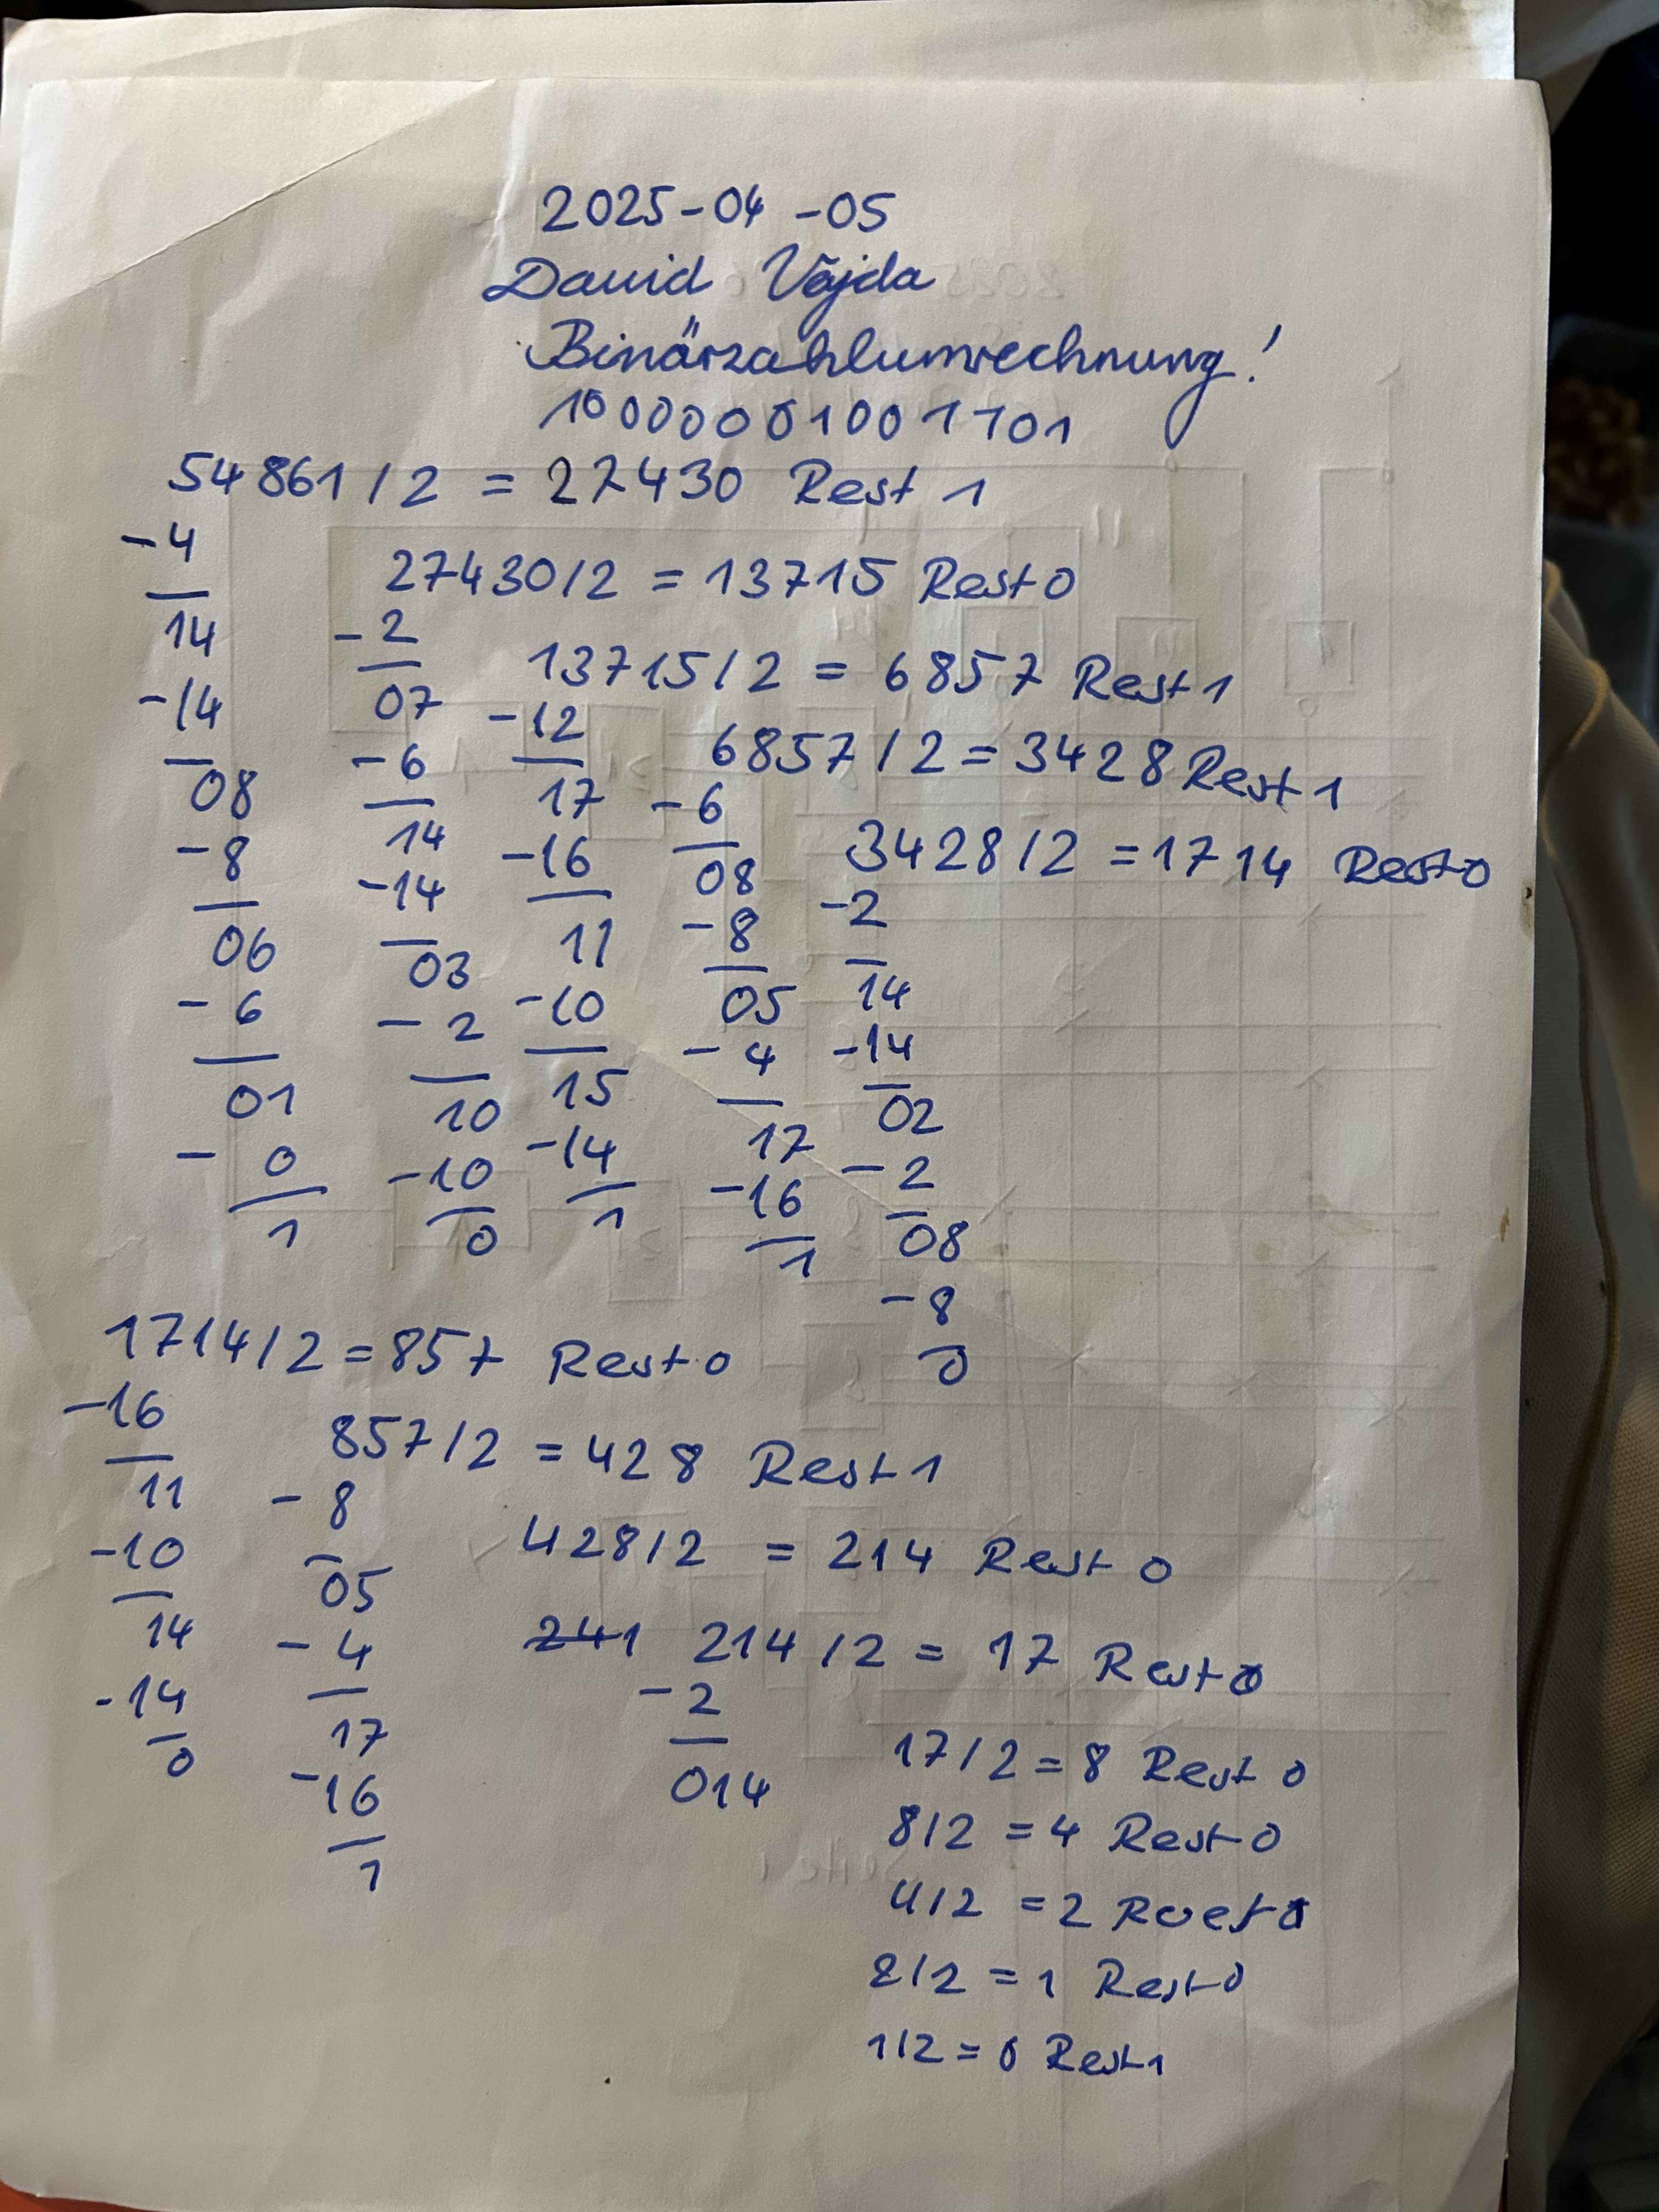 2025-04-05
David Vajda
Binärzahlumrechnung!
100000010011101
54861/2 = 27430 Rest 1
-4
14
-14
08
-8
06
-6
01
-0
1
27430/2 = 13715 Rest 0
-2
07
-6
14
-14
03
-2
10
-10
0
13715/2 = 6857 Rest 1
-12
17
-16
11
-10
15
-14
1
6857/2 = 3428 Rest 1
-6
08
-8
05
-4
17
-16
1
3428/2 = 1714 Rest 0
-2
14
-14
02
-2
08
-8
0
1714/2 = 857 Rest 0
-16
11
-10
14
-14
0
857/2 = 428 Rest 1
-8
05
-4
17
-16
1
428/2 = 214 Rest 0
241 214/2 = 17 Rest 0
-2
014
17/2 = 8 Rest 0
8/2 = 4 Rest 0
4/2 = 2 Rest 0
2/2 = 1 Rest 0
1/2 = 0 Rest 1